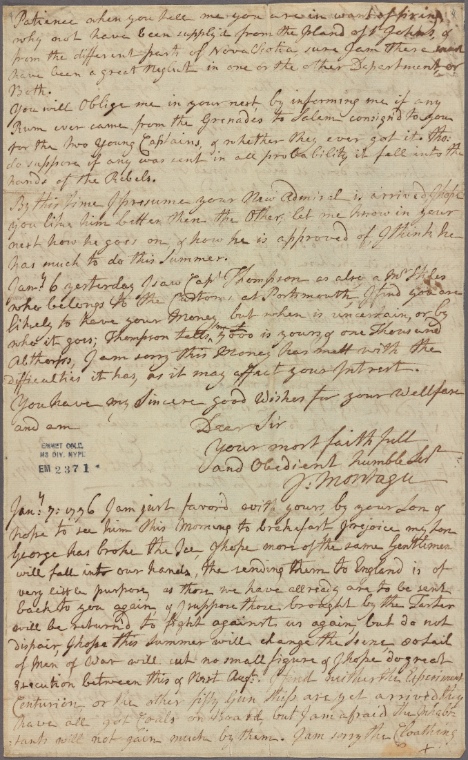 Patience when you tell me you are in want of
why not have been supply'd from the Island of St. Johns, &
from the different parts of Nova Scotia sure I am there must
have been a great Neglect in one or the other Department or
Both.
You will Oblige me in your next by informing me if any
Rum ever came from the Grenades to Salem consign'd to you
for the two Young Captains, & whether they ever got it. Tho: I
do suppose if any was sent in all probability it fell into the
hands of the Rebels.
By this time I presume your New Admiral is arrived, I hope
you like him better then the Other, let me know in your
next how he goes on, & how he is approved of I think he
has much to do this Summer.
Jany. 6 yesterday I saw Capt. Thompson as also a Mr.
who belongs to the Customs at Portsmouth, I find you are
likely to have your Money but when is uncertain, or by
who it goes; Thompson tells me 3000 is yours, & one Thousand
I am sorry this Money has mett with the
difficulties it has, as it may affect your Intrest.
You have my Sincere good Wishes for your Wellfare
and am
Dear Sir
Your most faithfull
and Obedient humble Sert.
J: Montagu
EMMET COLL.
MS DIV. NYPL
EM 2371
Jany. 7: 1776 I am just favord with yours by your Son I
hope to see him this Morning to brekefast. I rejoice my Son
George has broke the Ice I hope more of the same Gentlemen
will fall into our hands, the sending them to England is of
very little purpose, as those we have allready are to be sent
back to you again, & I suppose those brought by the Tarter
will be return'd to fight against us again but do not
dispair, I hope this Summer will change the Scene 80 Sail
of Men of War will cut no small figure & I hope do great
Execution between this & first Augt. I find neither the Experiment
Centurion or the other fifty Gun Ships are yet arrived they
have all got on Board, but I am afraid the Inhabi-
tants will not gain much by them. I am sorry the Cloathing